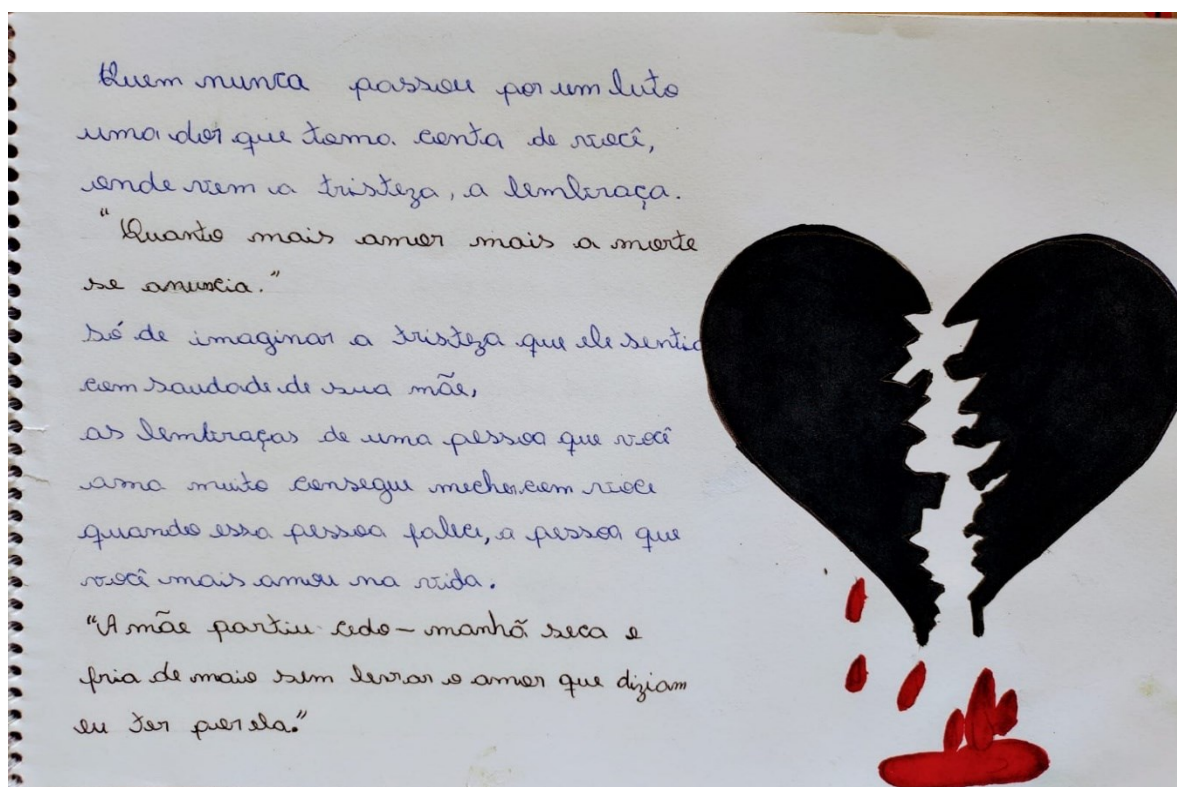 Quem nunca passou por um luto
uma dor que toma conta de você,
onde vem a tristeza, a lembraça.
"Quanto mais amor mais a morte
se anuncia."
Só de imaginar a tristeza que ele sentia
com saudade de sua mãe,
as lembraças de uma pessoa que você
ama muito consegue mecher com você
quando essa pessoa falece, a pessoa que
você mais amou na vida.
"A mãe partiu cedo – manhã seca e
fria de maio sem levar o amor que diziam
eu ter por ela."